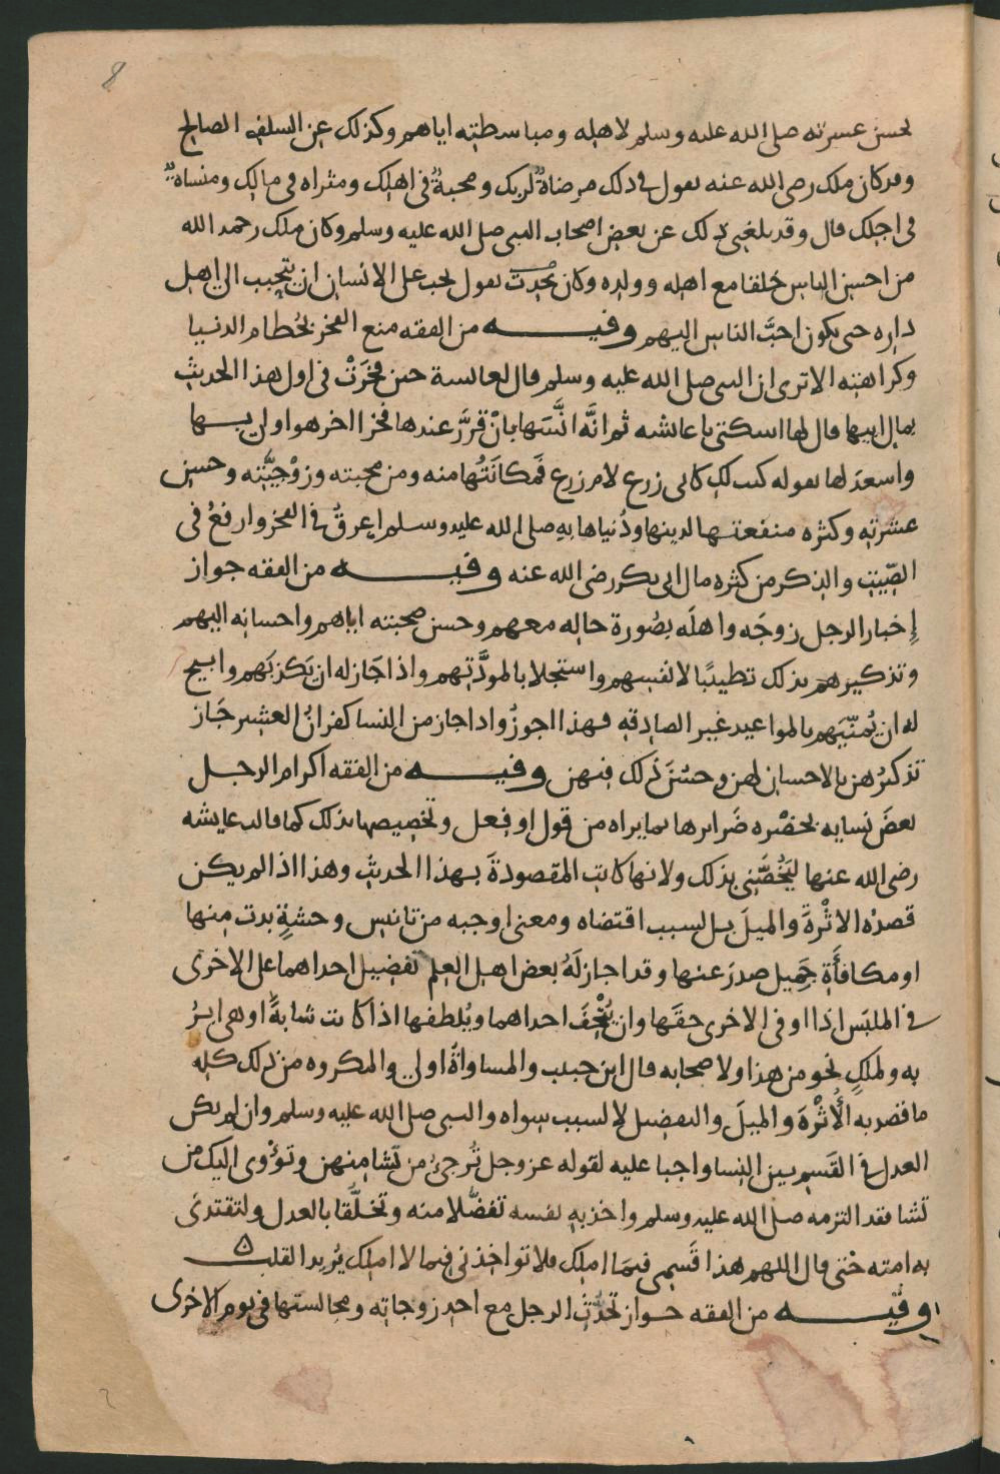 8
لحسن عسرته صلى الله عليه وسلم لاهله ومباسطته اياهم وكذلك عن السلف الصالح
وقد كان ملك رضي الله عنه يقول في ذلك مرضاة لربك ومحبة في اهلك ومثراه في مالك ومنساه
في اجلك قال وقد بلغني ذلك عن بعض اصحاب النبي صلى الله عليه وسلم وكان ملك رحمه الله
من احسن الناس خلقا مع اهله وولده وكان يحدث يقول يجب على الانسان ان يتحبب الى اهل
داره حتى يكون احبَّ الناس اليهم وفيه من الفقه منع الفخر بحُطام الدنيا
وكراهته الا ترى ان النبي صلى الله عليه وسلم قال لعائشة حين فخَرَتْ في اول هذا الحديث
بمال ابيها قال لها اسكتي يا عائشه ثم انَّه انَّسَها بانْ قرَّرَ عندها فخرا اخر هو اولى بها
واسعدَ لها بقوله كنت لكِ كابي زرع لام زرع فمَكانَتُها منه ومن محبته وزوْجيَّته وحسن
عشرته وكثره منفعتها لدينها ودُنياها به صلى الله عليه وسلم اعرقُ في الفخر وارفعُ في
الصّيت والذكر من كثرهِ مال ابي بكر رضي الله عنه وفيه من الفقه جواز
إخبار الرجل زوجَه واهلَه بصُورة حاله معهم وحسن صحبته اياهم واحسانه اليهم
وتذكيرهم بذلك تطييبًا لانفسهم واستجلابا لمودَّتهم واذا جَاز له ان يَكذبَهم وابيح
له ان يُمنّيَهم بالمواعيد غير الصادقه فهذا اجوزُ واذا جاز من النسا كفرانُ العشير جَاز
تذكيرُهن بالاحسان لهن وحسُنَ ذلك فيهن وفيه من الفقه اكرام الرجل
بعضَ نسايه بحضْره ضَرايرها بما يراه من قول او فعل وتخصيصها بذلك كما قالت عايشه
رضي الله عنها ليَخُصَّني بذلك ولانها كانت المقصودةَ بهذا الحديث وهذا اذا لم يكن
قصدُه الاثْرةَ والميلَ بل لسبب اقتضاه ومعنى اوجبه من تانيس وحشةٍ بدت منها
او مكافأَة جَميل صدرَ عنها وقد اجاز لَهُ بعض اهل العلم تفضيل احداهما على الاخرى
في الملبَس اذا اوفى الاخرى حقَها وان يُتْحِفَ احداهما ويُلطفها اذا كانت شابةً او هي ابرُ
به ولملكٍ نحو من هذا ولاصحابه قال ابن حبيب والمساواةُ اولى والمكروه من ذلك كله
ما قصد به الأُثْرةَ والميلَ والتفضيل لا لسبب سواه والنبي صلى الله عليه وسلم وان لم يكن
العدل في القَسم بين النسا واجبا عليه لقوله عز وجل تُرجئ من تَشا منهن وتؤوى اليك من
تشا فقد التزمه صلى الله عليه وسلم واخذ به نفسه تفضُّلا منه وتخلُّقا بالعدل ولتقتدى
به امته حتى قال اللهم هذا قَسمى فيما املك فلا تواخذنى فيما لا املك يُريد القلب
وفيه من الفقه جواز تحدُّث الرجل مع احدى زوجاته ومجالستها في يوم الاخرى